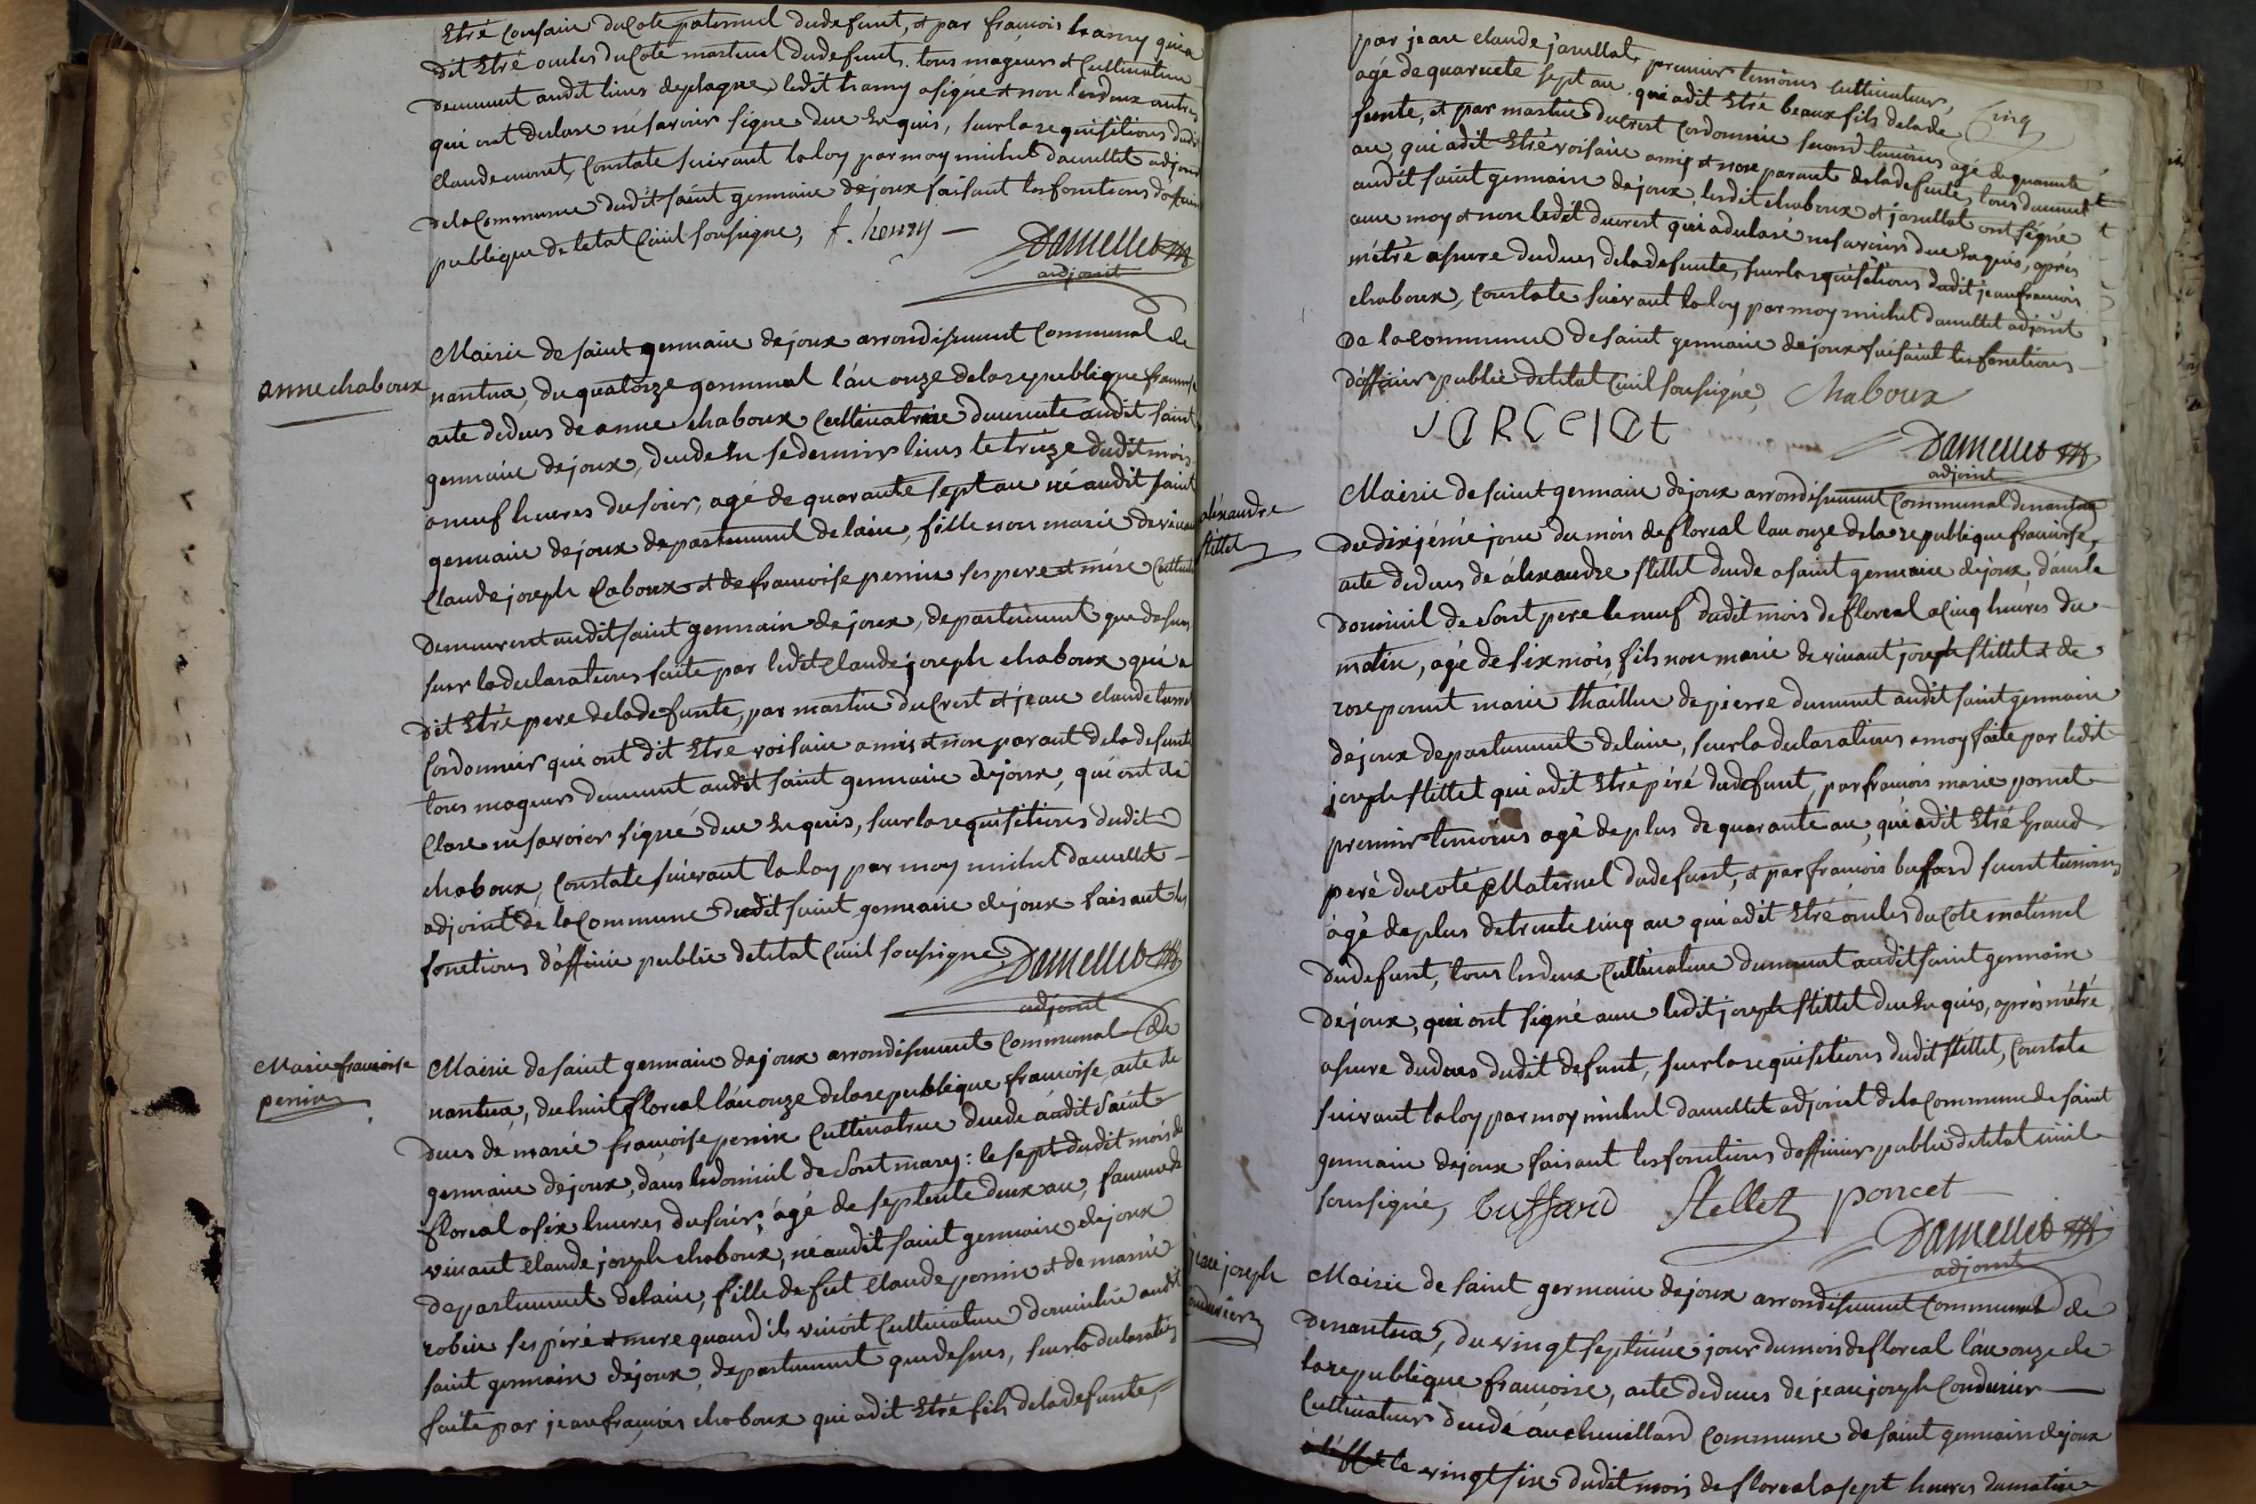 Etré Cousain du Cote paternel dudefunt, et par françois hanry quia
dit Etré oncles du Cote maternel dudefunt. tous mageurs et Cultivateur
demeurent audit lieux deplagne, ledit hanry asigne et non lesdeux autres
qui ont declare nésavoir signe due Enquis, surla requisitions dudit
Claude monet, Constate suivant laloy parmoy michel damellet adjoint
dela Commune dudit saint germain dejoux faisant les fonctions d'officier
publique de letat Civil sousigne, f. henry
Damellet
adjoint
anne chaboux
Mairie de saint germain dejoux arrondisement Communal de
nantua, du quatorze germinal l'au onze delarepublique francoise
acte deduces de anne chaboux Cultivatrice demeurente audit saint
germain dejoux, decede En sedernier lieux le treize dudit mois
aneuf heures dusoir, agé de quarante sept an né audit saint
germain dejoux departement delain, fille non marié devivant
Claude joseph Caboux et de francoise perrin ses pere et mére Cultivateur
demeurent audit saint germain dejoux, departement que desus
surr la declarations faite par ledit Claude joseph chaboux qui a
dit Etre pere deladefunte, par martin ducrest et jean claude
Cordonnier qui ont dit Etre voisain amis et non parant deladefunte
tous mageurs demeurent audit saint germain dejoux, qui ont dé
Clare nesavoir signé due Enquis, surlarequisitions dudit
chaboux, Constate suivant laloy par moy michel damellet
adjoint de la Commune dudit saint germain dejoux faisant les
fonctions d'officie public detetat Civil sousigne Damellet
adjoint
Marie francoise
perrin
Mairie de saint germain dejoux arrondisement Communal de
nantua, du huit floreal l'au onze delarepublique francoise, acte de
duces de marie françoise perrin Cultivatrice decede audit saint
germain dejoux, dans ledomicil de sont mary: le sept dudit mois de
floreal asix heures dusoir, agé de septente deux an, famme de
vivant Claude joseph chaboux, né audit saint germain dejoux
departement delain, fille de fut Claude perrin et de marie
robin ses péré et mere quand ils vivoit Cultivateur domicilie audit
saint germain dejoux, departement quedesus, surla declaration
faite par jean françois chaboux qui adit Etré fils deladefunte,
par jean claude jarullat, premier temoins cultivateur,
agé dequarente sept an. qui adit Etré beaux fils delade
Cinq
funte, et par martin ducrest Cordonnier second temoins agé de quarente
an, qui adit Etré voisain amis et non parant deladefunte, tous demeurent
audit saint germain dejoux, lesdit chaboux et jarullat ont signé
avec moy et non ledit ducrest qui adeclaré nesavoir due Enquis, aprés
métré asure duduces deladefunte, surla requisitions dudit jean francois
chaboux, Constate suivant laloy par moy michel damellet adjoint
de la commune de saint germain dejoux faisant les fonctions
d'officier public detetat Civil sousigné, Chaboux
JARCElAt
Damellet
adjoint
aléxandre
stillet
Mairie de saint germain dejoux arrondisement Communal denantua
du dixjéme jour du mois de floréal lan onze dela republique francoise,
acte deduces de álexandre stillet decede asaint germain dejoux, dans le
domicil de sont pere le neuf dudit mois de floreal acinq heures du
matin, agé de six mois, fils non marié de vivant joseph stillet et de
rose poncet marie de pierre demeurent audit saint germain
déjoux departement delain, surla declarations amoy faite par ledit
joseph stillet qui adit Etré péré dudefunt, par francois marie poncet
premier temoins agé deplus de quarante an, qui adit Etré Grand
peré du cote Maternel dudefunt, et par francois buffard secont temoins
agé deplus detrente cinq an qui adit Etré oncles du Cote maternel
dudefunt, tous lesdeux Cultivateur demeurent audit saint germain
déjoux, qui ont signé avec ledit joseph stillet due Enquis, aprés métré
asure duduces dudit defunt, surlarequisitions dudit stillet, Constate
suivant laloy par moy michel damellet adjoint dela Commune de saint
germain dejoux faisant les fonctions d'officier public detetat civil
sousigné, buffard Stellet poncet
Damellet
adjoint
jean joseph
Coudurier
Mairie de saint germain dejoux arrondisement Communal de
denantua, du vingt septiéme jour dumois defloreal l'au onze de
larepublique francoise, acte deduces de jean joseph Coudurier
Cultivateur decedé au chevillard Commune de saint germain dejoux
le vingt six dudit mois de floreal asept heures dumatin